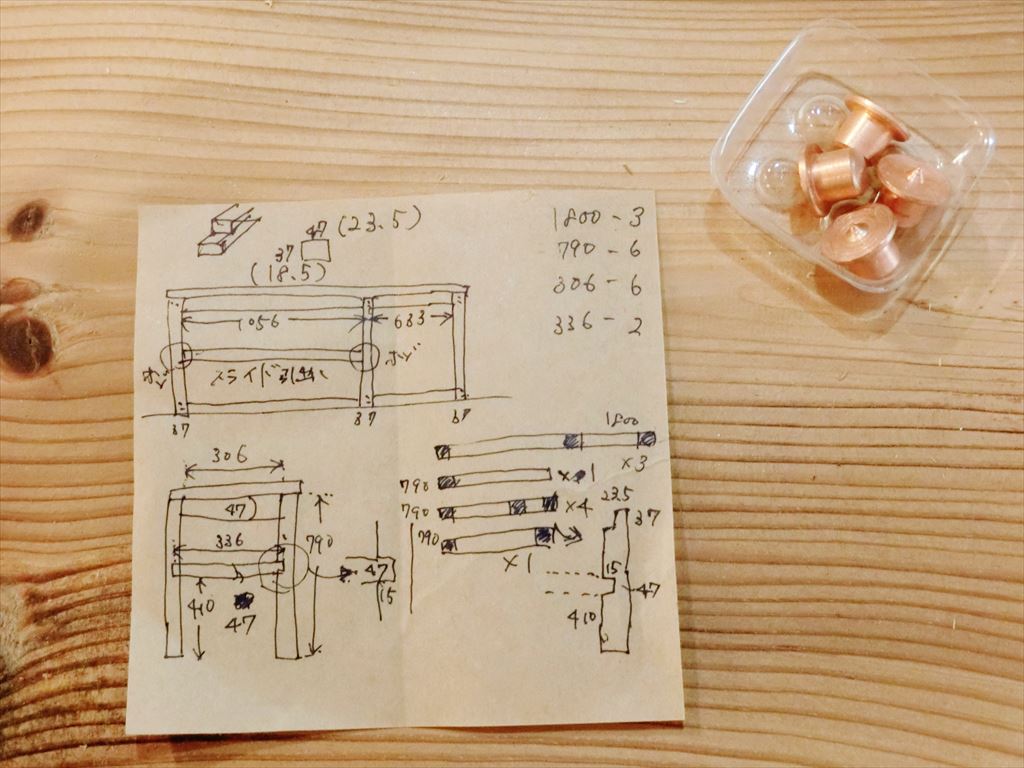 47 (23.5)
37
(18.5)
1800 - 3
790 - 6
306 - 6
336 - 2
1056
633
ホゾ
スライド引出し
ホゾ
37
37
37
306
47
336
790
410
47
47
15
1800
×3
790
×1
790
×4
790
×1
23.5
37
15
47
410